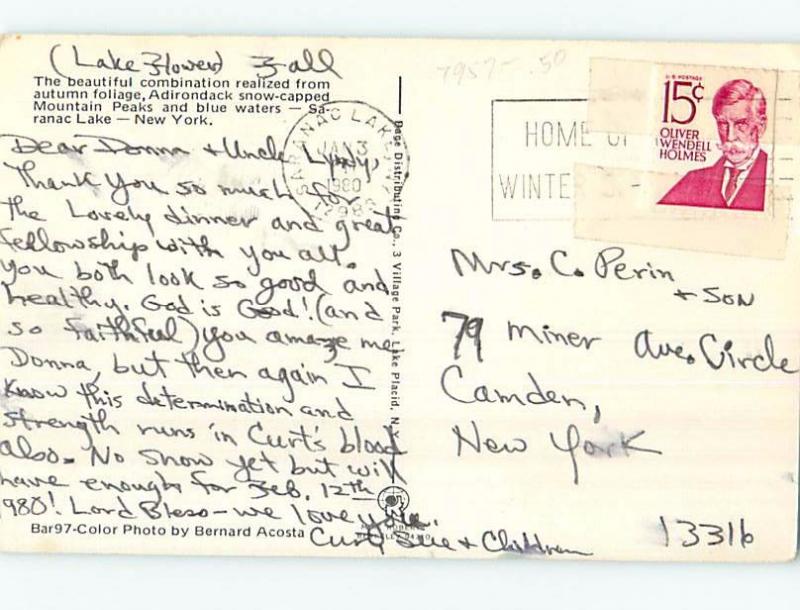 (Lake Flower) Fall
The beautiful combination realized from
autumn foliage, Adirondack snow-capped
Mountain Peaks and blue waters — Sa-
ranac Lake — New York.
Dear Donna + Uncle
Thank You so much for
the Lovely dinner and great
fellowship with you all.
You both look so good and
healthy. God is Good! (and
so faithful) you amaze me
Donna, but then again I
know this determination and
strength runs in Curt's blood
also. No snow yet but will
have enough for Feb. 12th
1980! Lord Bless - we love you.
Curt, Sue + Children
Bar97-Color Photo by Bernard Acosta
Dage Distributing Co., 3 Village Park, Lake Placid, N.Y.
7957- .50
SARANAC LAKE
JAN 3
1980
12983
HOME OF
WINTER
U.S. POSTAGE
15¢
OLIVER
WENDELL
HOLMES
Mrs. C. Perin
+ SON
79 Miner Ave. Circle
Camden,
New York
13316